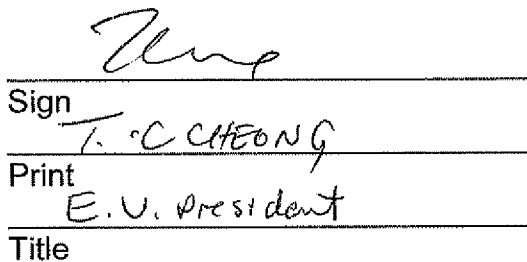 Sign
T. C CHEONG
Print
E.V. President
Title